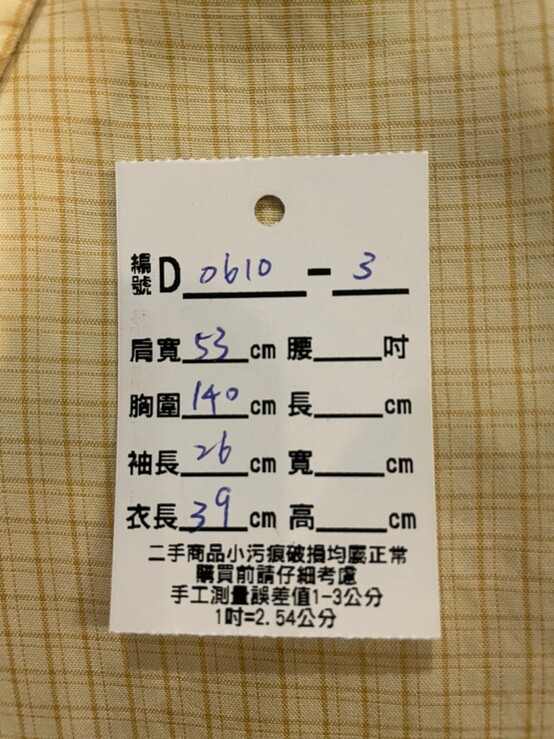 編號D 0610 - 3
肩寬 53 cm 腰____吋
胸圍 140 cm 長____cm
袖長 26 cm 寬____cm
衣長 39 cm 高____cm
二手商品小污痕破損均屬正常
購買前請仔細考慮
手工測量誤差值1-3公分
1吋=2.54公分